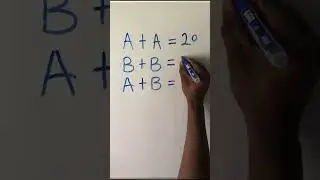 A + A = 20
B + B =
A + B =